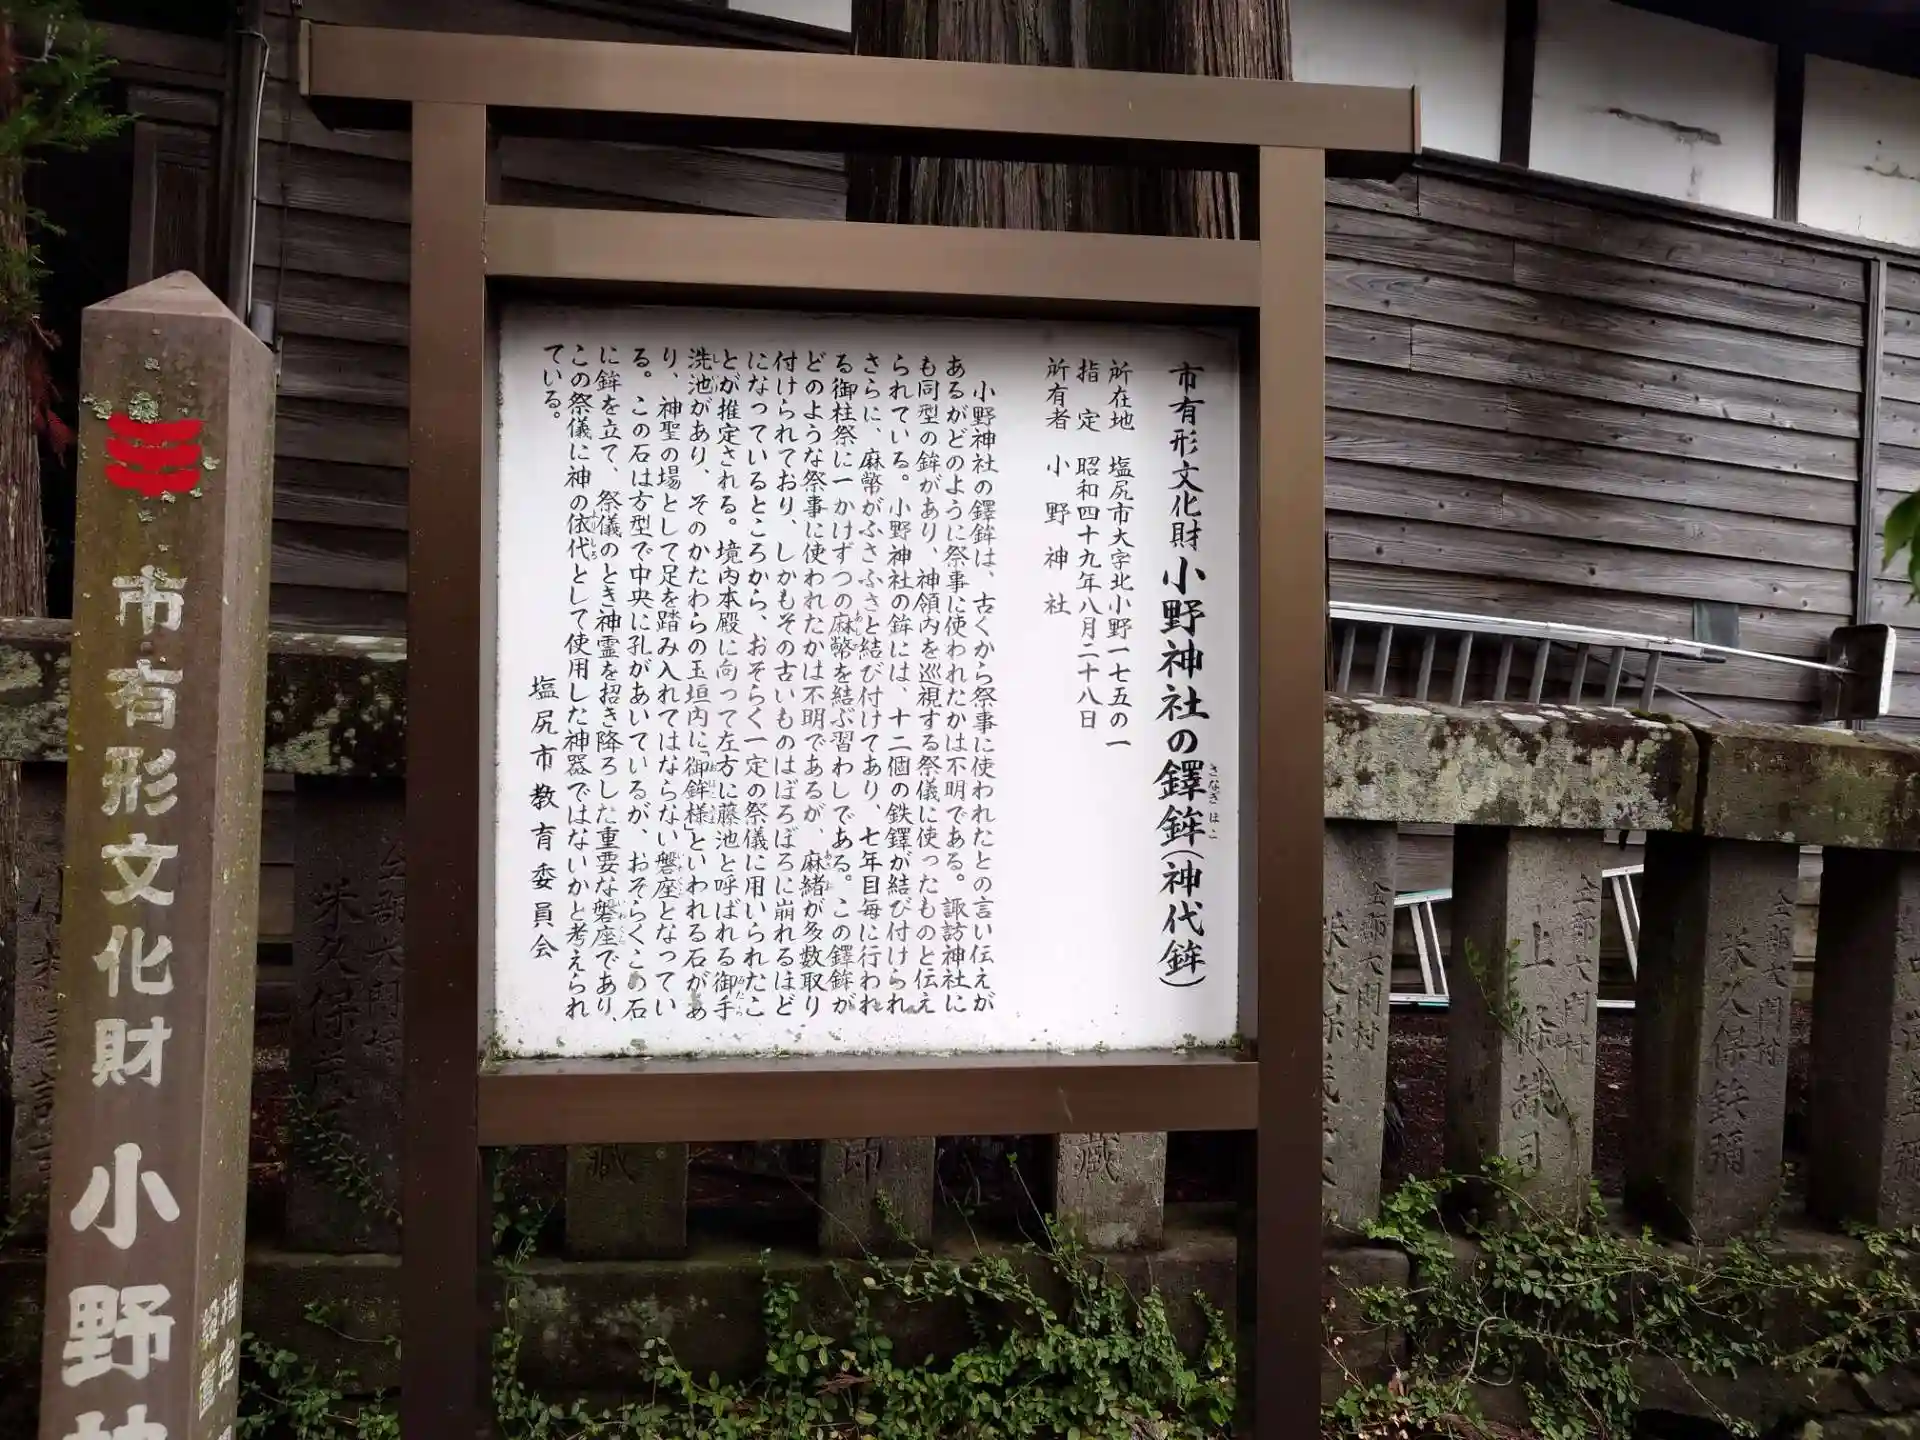 市有形文化財 小野神社の鐸鉾(神代鉾)
さなぎほこ
所在地 塩尻市大字北小野一七五の一
指定 昭和四十九年八月二十八日
所有者 小野神社
小野神社の鐸鉾は、古くから祭事に使われたとの言い伝えが
あるがどのように祭事に使われたかは不明である。諏訪神社に
も同型の鉾があり、神領内を巡視する祭儀に使ったものと伝え
られている。小野神社の鉾には、十二個の鉄鐸が結び付けられ
さらに、麻幣がふさふさと結び付けてあり、七年目毎に行われ
る御柱祭に一かけずつの麻幣を結ぶ習わしである。この鐸鉾が
どのような祭事に使われたかは不明であるが、麻緒が多数取り
付けられており、しかもその古いものはぼろぼろに崩れるほど
になっているところから、おそらく一定の祭儀に用いられたこ
とが推定される。境内本殿に向って左方に藤池と呼ばれる御手
洗池があり、そのかたわらの玉垣内に「御鉾様」といわれる石があ
り、神聖の場として足を踏み入れてはならない磐座となってい
る。この石は方型で中央に孔があいているが、おそらくこの石
に鉾を立て、祭儀のとき神霊を招き降ろした重要な磐座であり、
この祭儀に神の依代として使用した神器ではないかと考えられ
ている。
塩尻市教育委員会
市有形文化財 小野
指定
上條誠司
米久保鉄弥
米久保
蔵
印
蔵